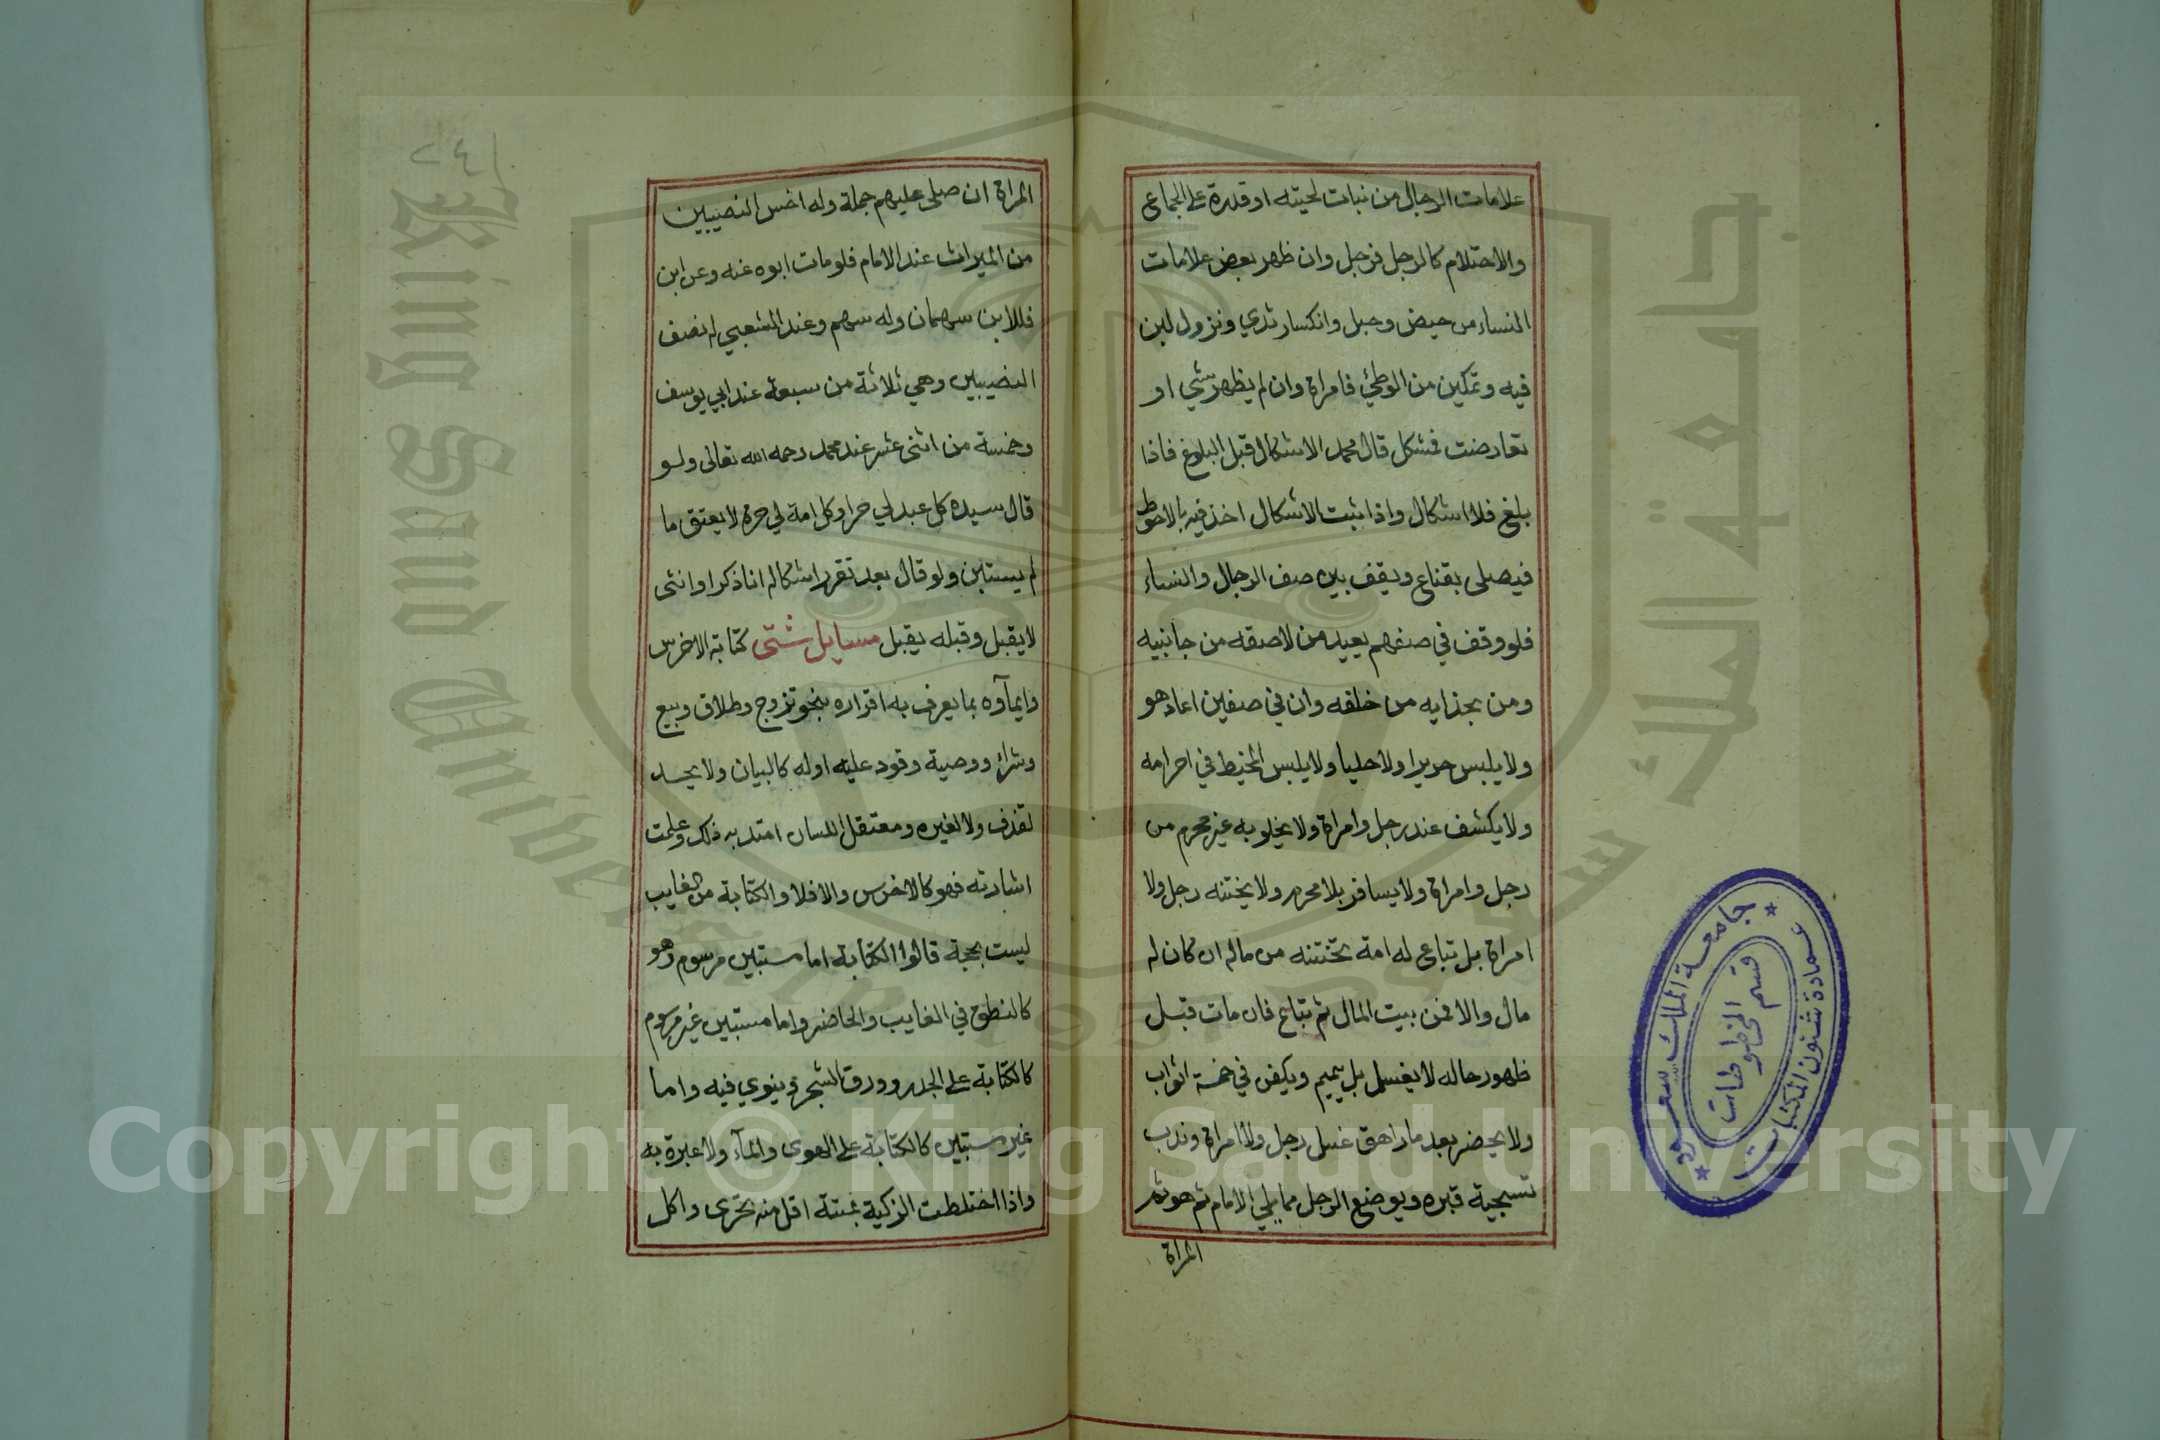 علامات الرجال من نبات لحيته او قدرة على الجماع
والاحتلام كالرجل فرجل وان ظهر بعض علامات
النساء من حيض وحبل وانكسار ثدي ونزول لبن
فيه وتمكين من الوطئ فامراة وان لم يظهر شئ او
تعارضت فمشكل قال محمد الاشكال قبل البلوغ فاذا
بلغ فلا اشكال واذا ثبت الاشكال اخذ فيه بالاحوط
فيصلى بقناع ويقف بين صف الرجال والنساء
فلو وقف في صفهم يعيد من لاصقه من جانبيه
ومن بحذايه من خلفه وان في صفين اعاد هو
ولا يلبس حريرا ولا حليا ولا يلبس المخيط في احرامه
ولا يكشف عند رجل وامراة ولا يخلو به غير محرم من
رجل وامراة ولا يسافر بلا محرم ولا يختنه رجل ولا
امراة بل تباع له امة تختنه من ماله ان كان له
مال والا فمن بيت المال ثم تباع فان مات قبل
ظهور حاله لا يغسل بل ييمم ويكفن في خمسة اثواب
ولا يحضر بعد ما راهق غسل رجل ولا امراة وندب
تسجية قبره ويوضع الرجل مما يلي الامام ثم هو ثم
المراة
المراة ان صلى عليهم جملة وله اخس النصيبين
من الميراث عند الامام فلو مات ابوه عنه وعن ابن
فللابن سهمان وله سهم وعند الشعبي له نصف
النصيبين وهي ثلاثة من سبعة عند ابي يوسف
وخمسة من اثنى عشر عند محمد رحمه الله تعالى ولو
قال سيده كل عبد لي حر او كل امة لي حرة لا يعتق ما
لم يستبن ولو قال بعد تقرر اشكاله انا ذكر او انثى
لا يقبل وقبله يقبل مسايل شتى كتابة الاخرس
وايمآوه بما يعرف به اقراره بنحو تزوج وطلاق وبيع
وشرائ ووصية وقود عليه او له كالبيان ولا يحد
لقذف ولا لغيره ومعتقل اللسان امتد به ذلك وعلمت
اشارته فهو كالاخرس والا فلا والكتابة من الغايب
ليست بحجة قالوا الكتابة اما مستبين مرسوم وهو
كالنطق في الغايب والحاضر واما مستبين غير مرسوم
كالكتابة على الجدر وورق الشجر وينوي فيه واما
غير مستبين كالكتابة على الهوى والمآء ولا عبرة به
واذا اختلطت الزكية بميتة اقل منه تحرى واكل
٢٤١
جامعة الملك سعود
قسم المخطوطات
عمادة شئون المكتبات
King Saud University
جامعة الملك سعود
1957
Copyright © King Saud University